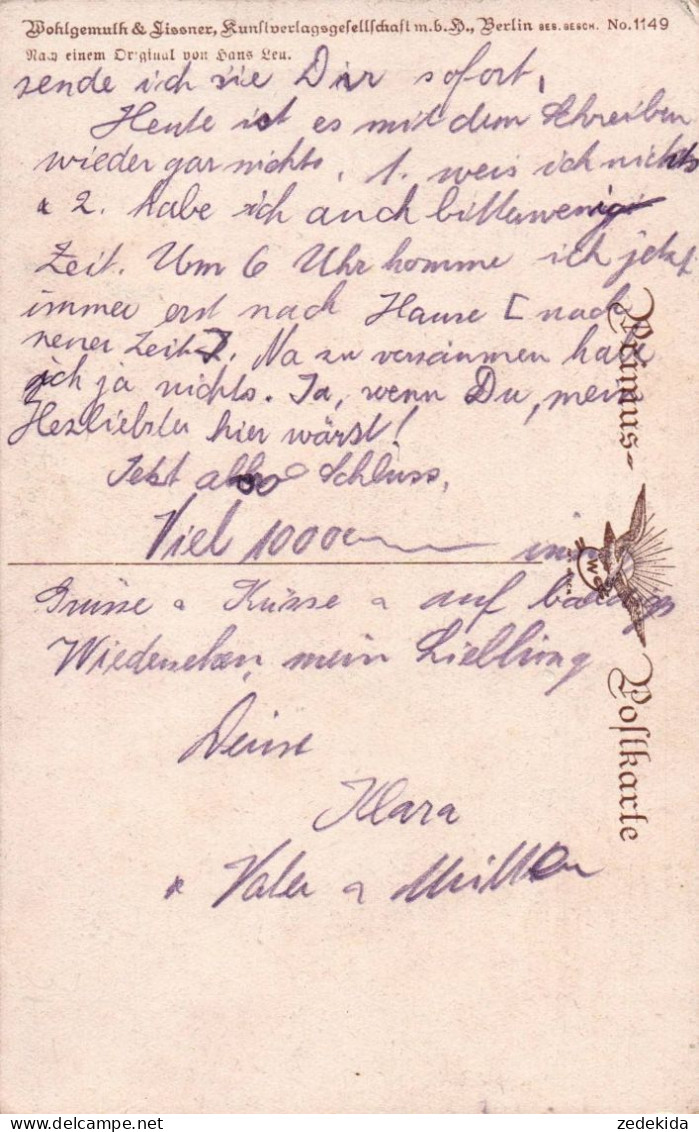 Wohlgemuth & Lissner, Kunstverlagsgesellschaft m.b.H., Berlin GES. GESCH. No. 1149
Nach einem Original von Hans Leu.
sende ich sie Dir sofort,
Heute ist es mit dem Schreiben
wieder gar nichts. 1. weis ich nichts
u 2. habe ich auch bitterwenig
Zeit. Um 6 Uhr komme ich jetzt
immer erst nach Hause [nach
neuer Zeit]. Na zu versäumen habe
ich ja nichts. Ja, wenn Du, mein
Herzliebster hier wärst!
Jetzt also Schluss,
Viel 1000e innige
Grüsse u Küsse u auf baldiges
Wiedersehen, mein Liebling
Deine
Klara
u Vater u Mutter
Primus-
Postkarte
zedekida